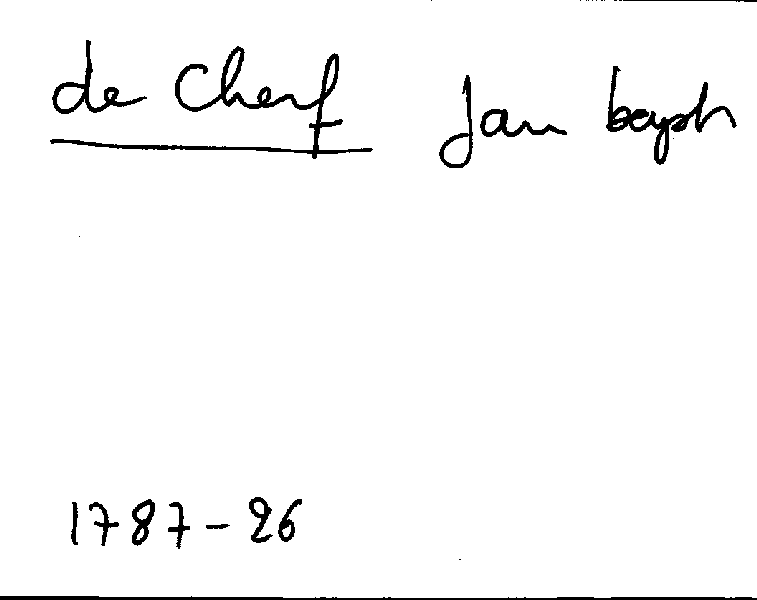 de Cherf Jan bapt
1787-26